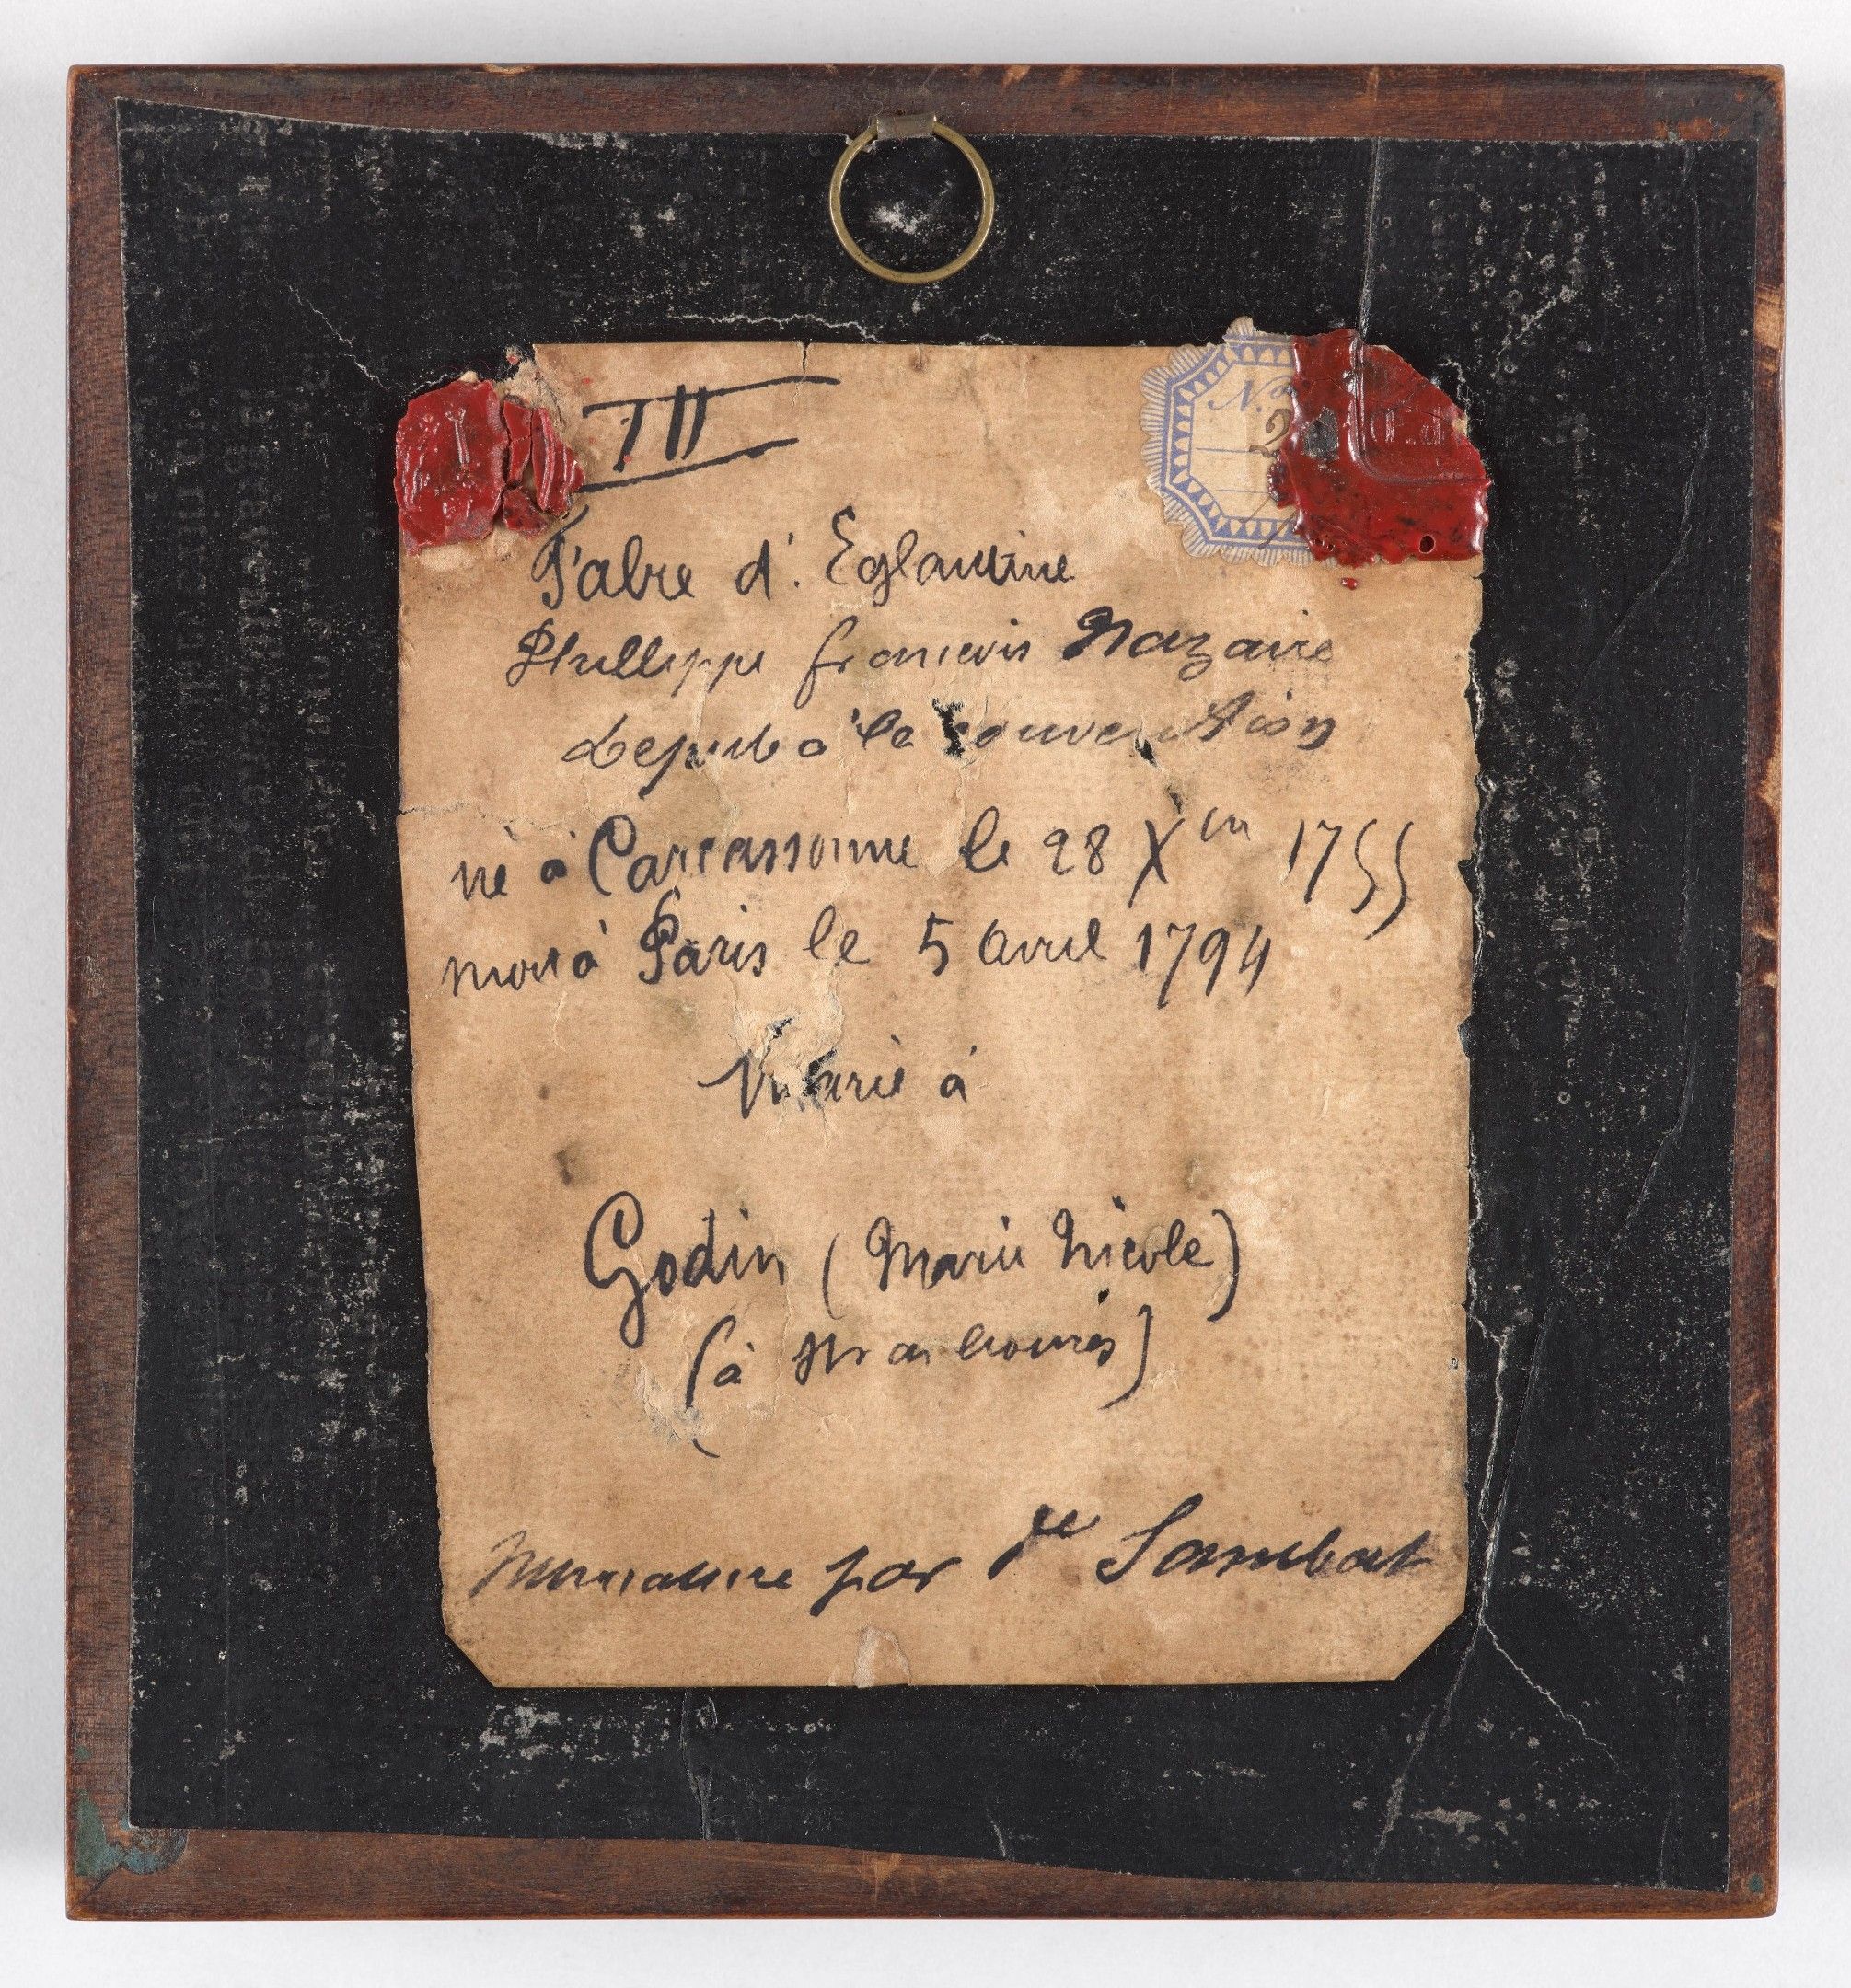 III
No
2
Fabre d'. Eglantine
Phillippe francois Nazaire
Depute a la convention
né à Carcassonne le 28 Xbre 1755
mort à Paris le 5 avril 1794
Marié à
Godin (Marie Nicole)
(à
Miniature par de Sambat